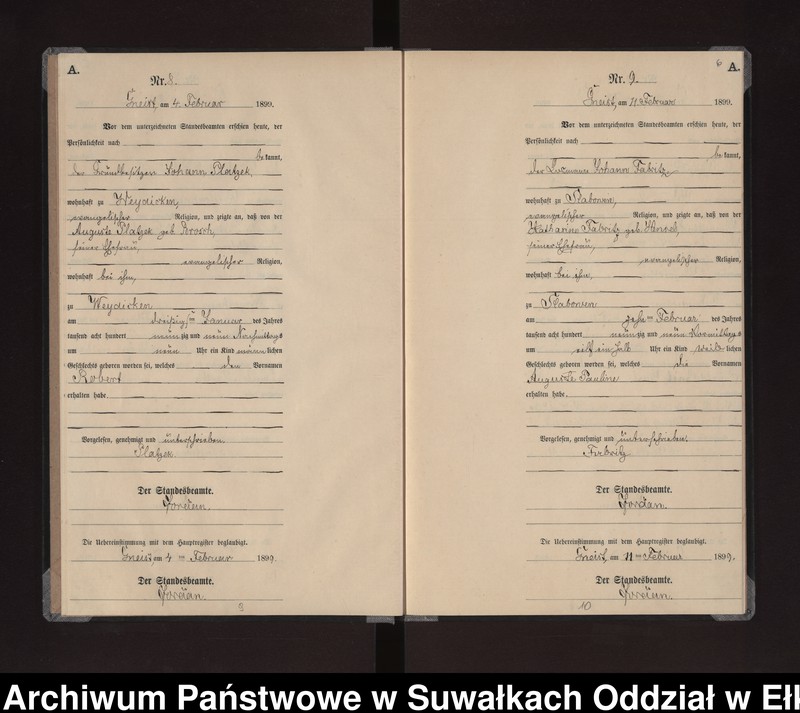 A.
Nr. 8.
Gneist, am 4. Februar 1899.
Vor dem unterzeichneten Standesbeamten erschien heute, der
Persönlichkeit nach
bekannt,
der Grundbesitzer Johann Platzek,
wohnhaft zu Weydicken,
evangelischer Religion, und zeigte an, daß von der
Auguste Platzek geb. Brosch,
seiner Ehefrau,
evangelischer Religion,
wohnhaft bei ihm,
zu Weydicken
am dreißigsten Januar des Jahres
tausend acht hundert neunzig und neun Nachmittags
um neun Uhr ein Kind männlichen
Geschlechts geboren worden sei, welches den Vornamen
Robert
erhalten habe.
Vorgelesen, genehmigt und unterschrieben.
Platzek
Der Standesbeamte.
Jordan.
Die Uebereinstimmung mit dem Hauptregister beglaubigt.
Gneist, am 4ten Februar 1899.
Der Standesbeamte.
Jordan.
9
6
A.
Nr. 9.
Gneist, am 11. Februar 1899.
Vor dem unterzeichneten Standesbeamten erschien heute, der
Persönlichkeit nach
bekannt,
der Losmann Johann Fabritz,
wohnhaft zu Slabowen,
evangelischer Religion, und zeigte an, daß von der
Katharine Fabritz geb.
seiner Ehefrau,
evangelischer Religion,
wohnhaft bei ihm,
zu Slabowen
am Februar des Jahres
tausend acht hundert neunzig und neun Vormittags
um elf ein halb Uhr ein Kind weiblichen
Geschlechts geboren worden sei, welches die Vornamen
Auguste Pauline
erhalten habe.
Vorgelesen, genehmigt und unterschrieben.
Fabritz
Der Standesbeamte.
Jordan.
Die Uebereinstimmung mit dem Hauptregister beglaubigt.
Gneist, am 11ten Februar 1899.
Der Standesbeamte.
Jordan.
10
Archiwum Państwowe w Suwałkach Oddział w Ełk